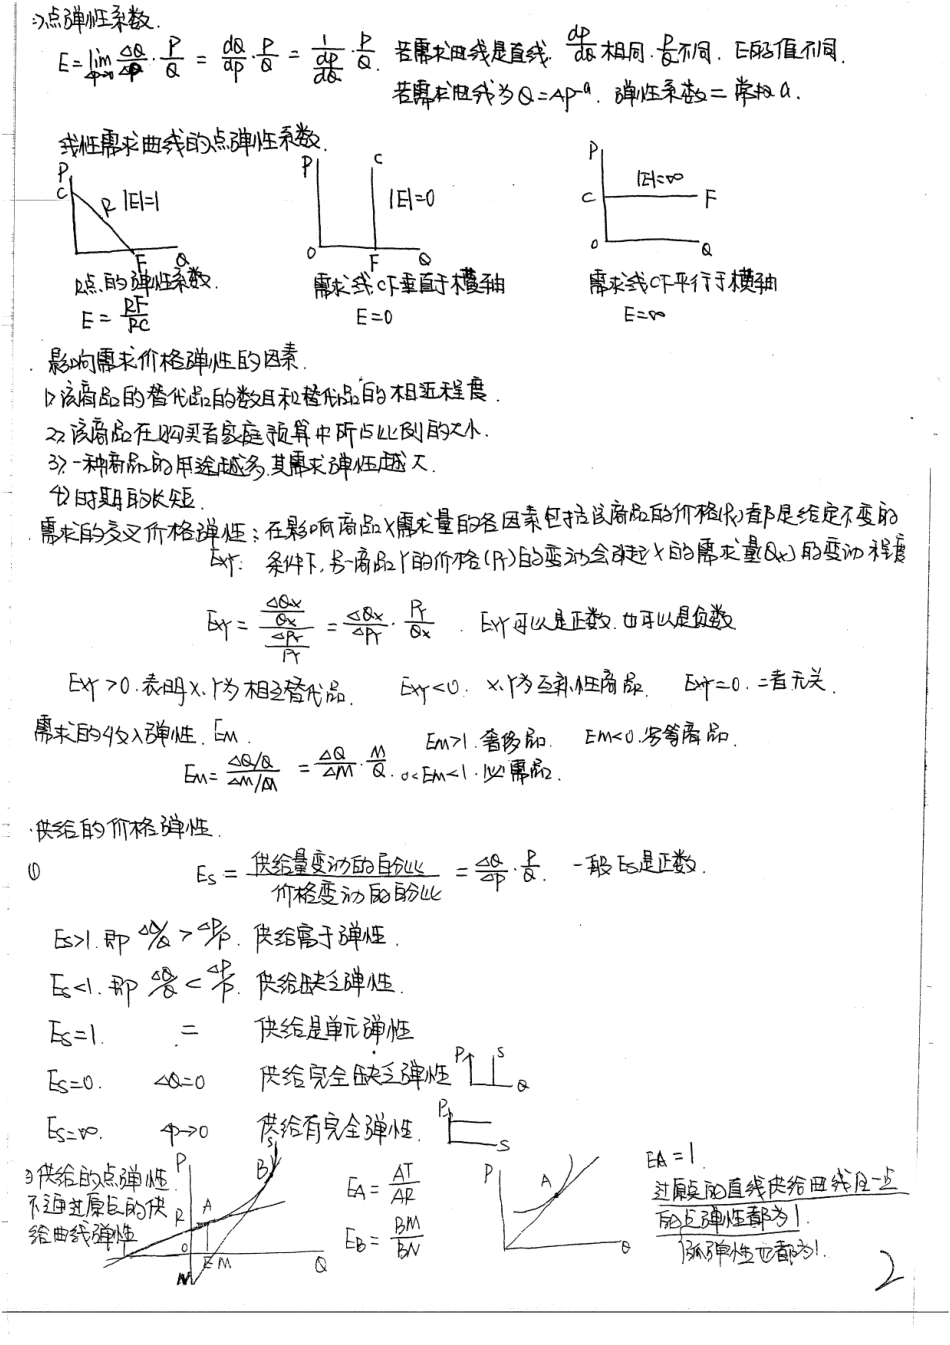 2>点弹性系数.
E=lim ΔP→0 ΔQ/ΔP · P/Q = dQ/dP · P/Q = 1/(dP/dQ) · P/Q. 若需求曲线是直线. dP/dQ 相同. P/Q不同. E的值不同.
若需求曲线为Q=AP^-a. 弹性系数=常数a.
线性需求曲线的点弹性系数.
P C R |E|=1 O F Q
P C |E|=0 O F Q
P C |E|=∞ F O Q
R点的弹性系数. 需求线CF垂直于横轴 需求线CF平行于横轴
E=RF/RC E=0 E=∞
影响需求价格弹性的因素.
1>该商品的替代品的数目和替代品的相近程度.
2>该商品在购买者家庭预算中所占比例的大小.
3>一种商品的用途越多,其需求弹性越大.
4>时期的长短.
需求的交叉价格弹性:在影响商品X需求量的各因素包括该商品的价格(Px)都是给定不变的
Exy: 条件下,另一商品Y的价格(Py)的变动会引起X的需求量(Qx)的变动程度
Exy = (ΔQx/Qx)/(ΔPy/Py) = ΔQx/ΔPy · Py/Qx . Exy可以是正数.也可以是负数
Exy>0.表明X、Y为相互替代品. Exy<0. X、Y为互补性商品. Exy=0.二者无关.
需求的收入弹性. Em. Em>1.奢侈品. Em<0.劣等商品.
Em= (ΔQ/Q)/(ΔM/M) = ΔQ/ΔM · M/Q. 0<Em<1.必需品.
·供给的价格弹性.
① Es = 供给量变动的百分比/价格变动的百分比 = ΔQ/ΔP · P/Q. 一般Es是正数.
Es>1.即 ΔQ/Q > ΔP/P. 供给富于弹性.
Es<1.即 ΔQ/Q < ΔP/P. 供给缺乏弹性.
Es=1. = 供给是单元弹性
Es=0. ΔQ=0 供给完全缺乏弹性 P S Q
Es=∞. ΔP→0 供给有完全弹性. P S
2>供给的点弹性
不通过原点的供
给曲线弹性
P S B R A O N E M Q
EA = AT/AR
EB = BM/BN
P A Q
EA=1.
过原点的直线供给曲线任一点
的点弹性都为1.
弧弹性也都为1.
2